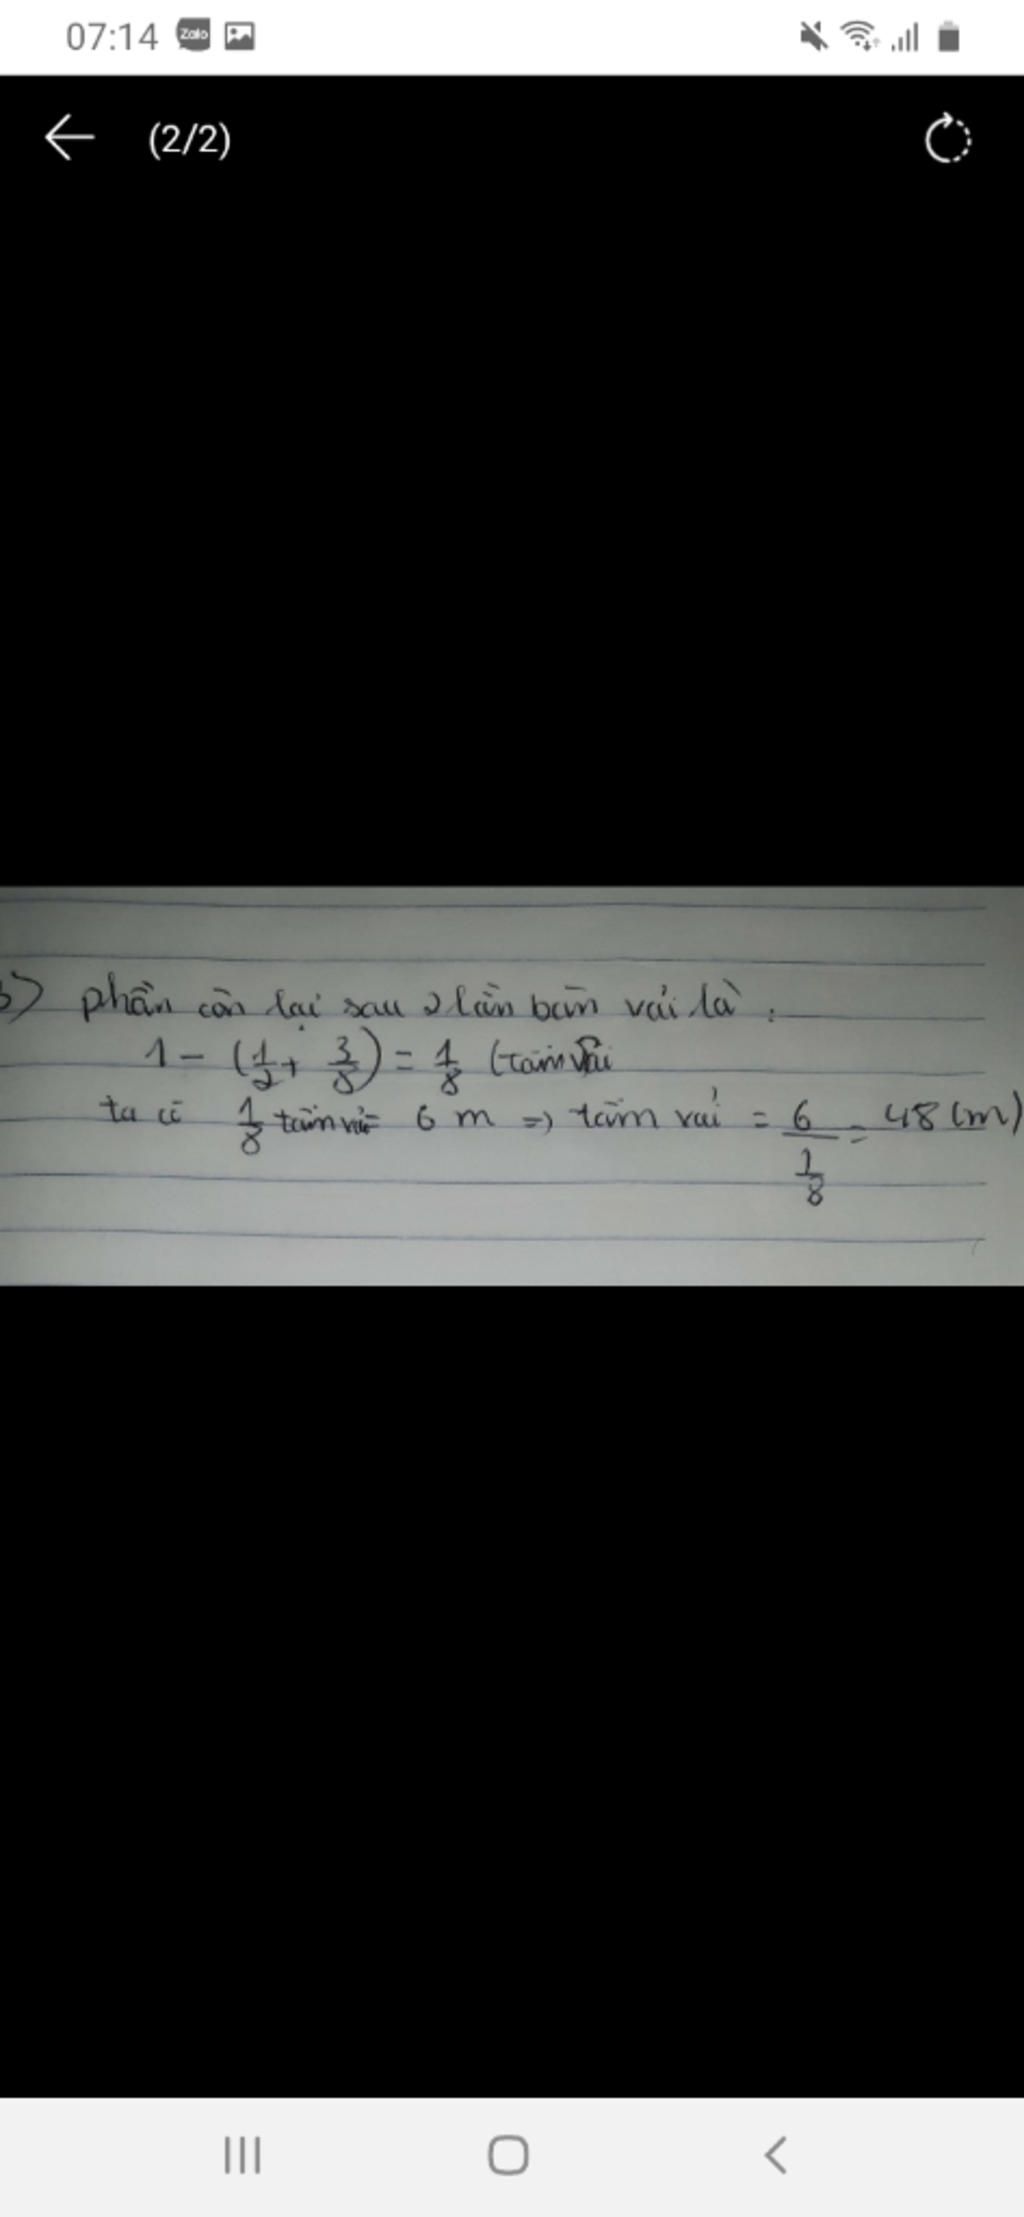 07:14 Zalo
(2/2)
b) phần còn lại sau 2 lần bán vải là:
1 - (1/2 + 3/8) = 1/8 (tấm vải
ta có 1/8 tấm vải = 6 m => tấm vải = 6/(1/8) = 48 (m)